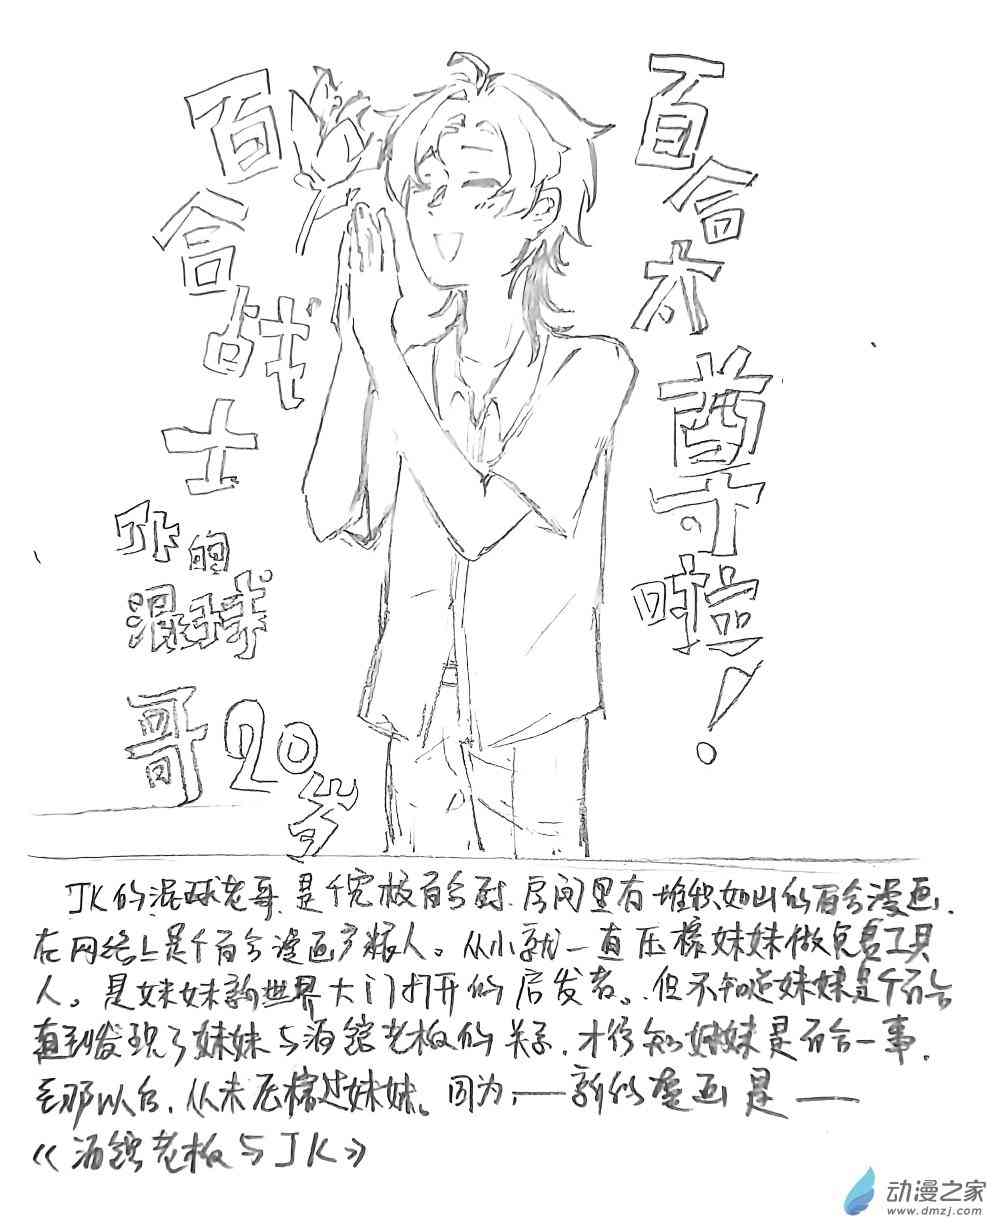 百合太尊啦！
百合战士
JK的
混球
哥20岁
JK的混球老哥.是个究极百合厨.房间里有堆积如山的百合漫画.
在网络上是个百合漫画产粮人。从小就一直压榨妹妹做免费工具
人。是妹妹新世界大门打开的启发者。.但不知道妹妹是个百合
直到发现了妹妹与酒馆老板的关系.才得知妹妹是百合一事.
至那以后.从未压榨过妹妹。因为.——新的漫画是——
《酒馆老板与JK》
动漫之家
www.dmzj.com